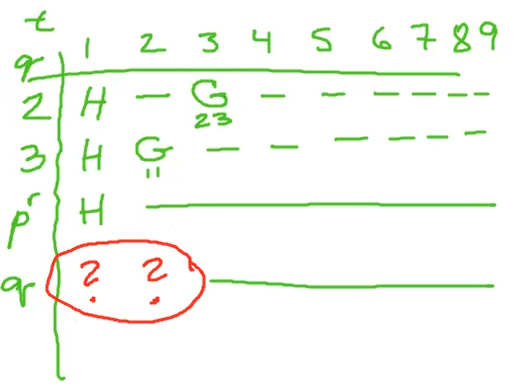 t 1 2 3 4 5 6 7 8 9
q
2 H — G — — — — — —
23
3 H G — — — — — — —
11
p^r H
q ? ?